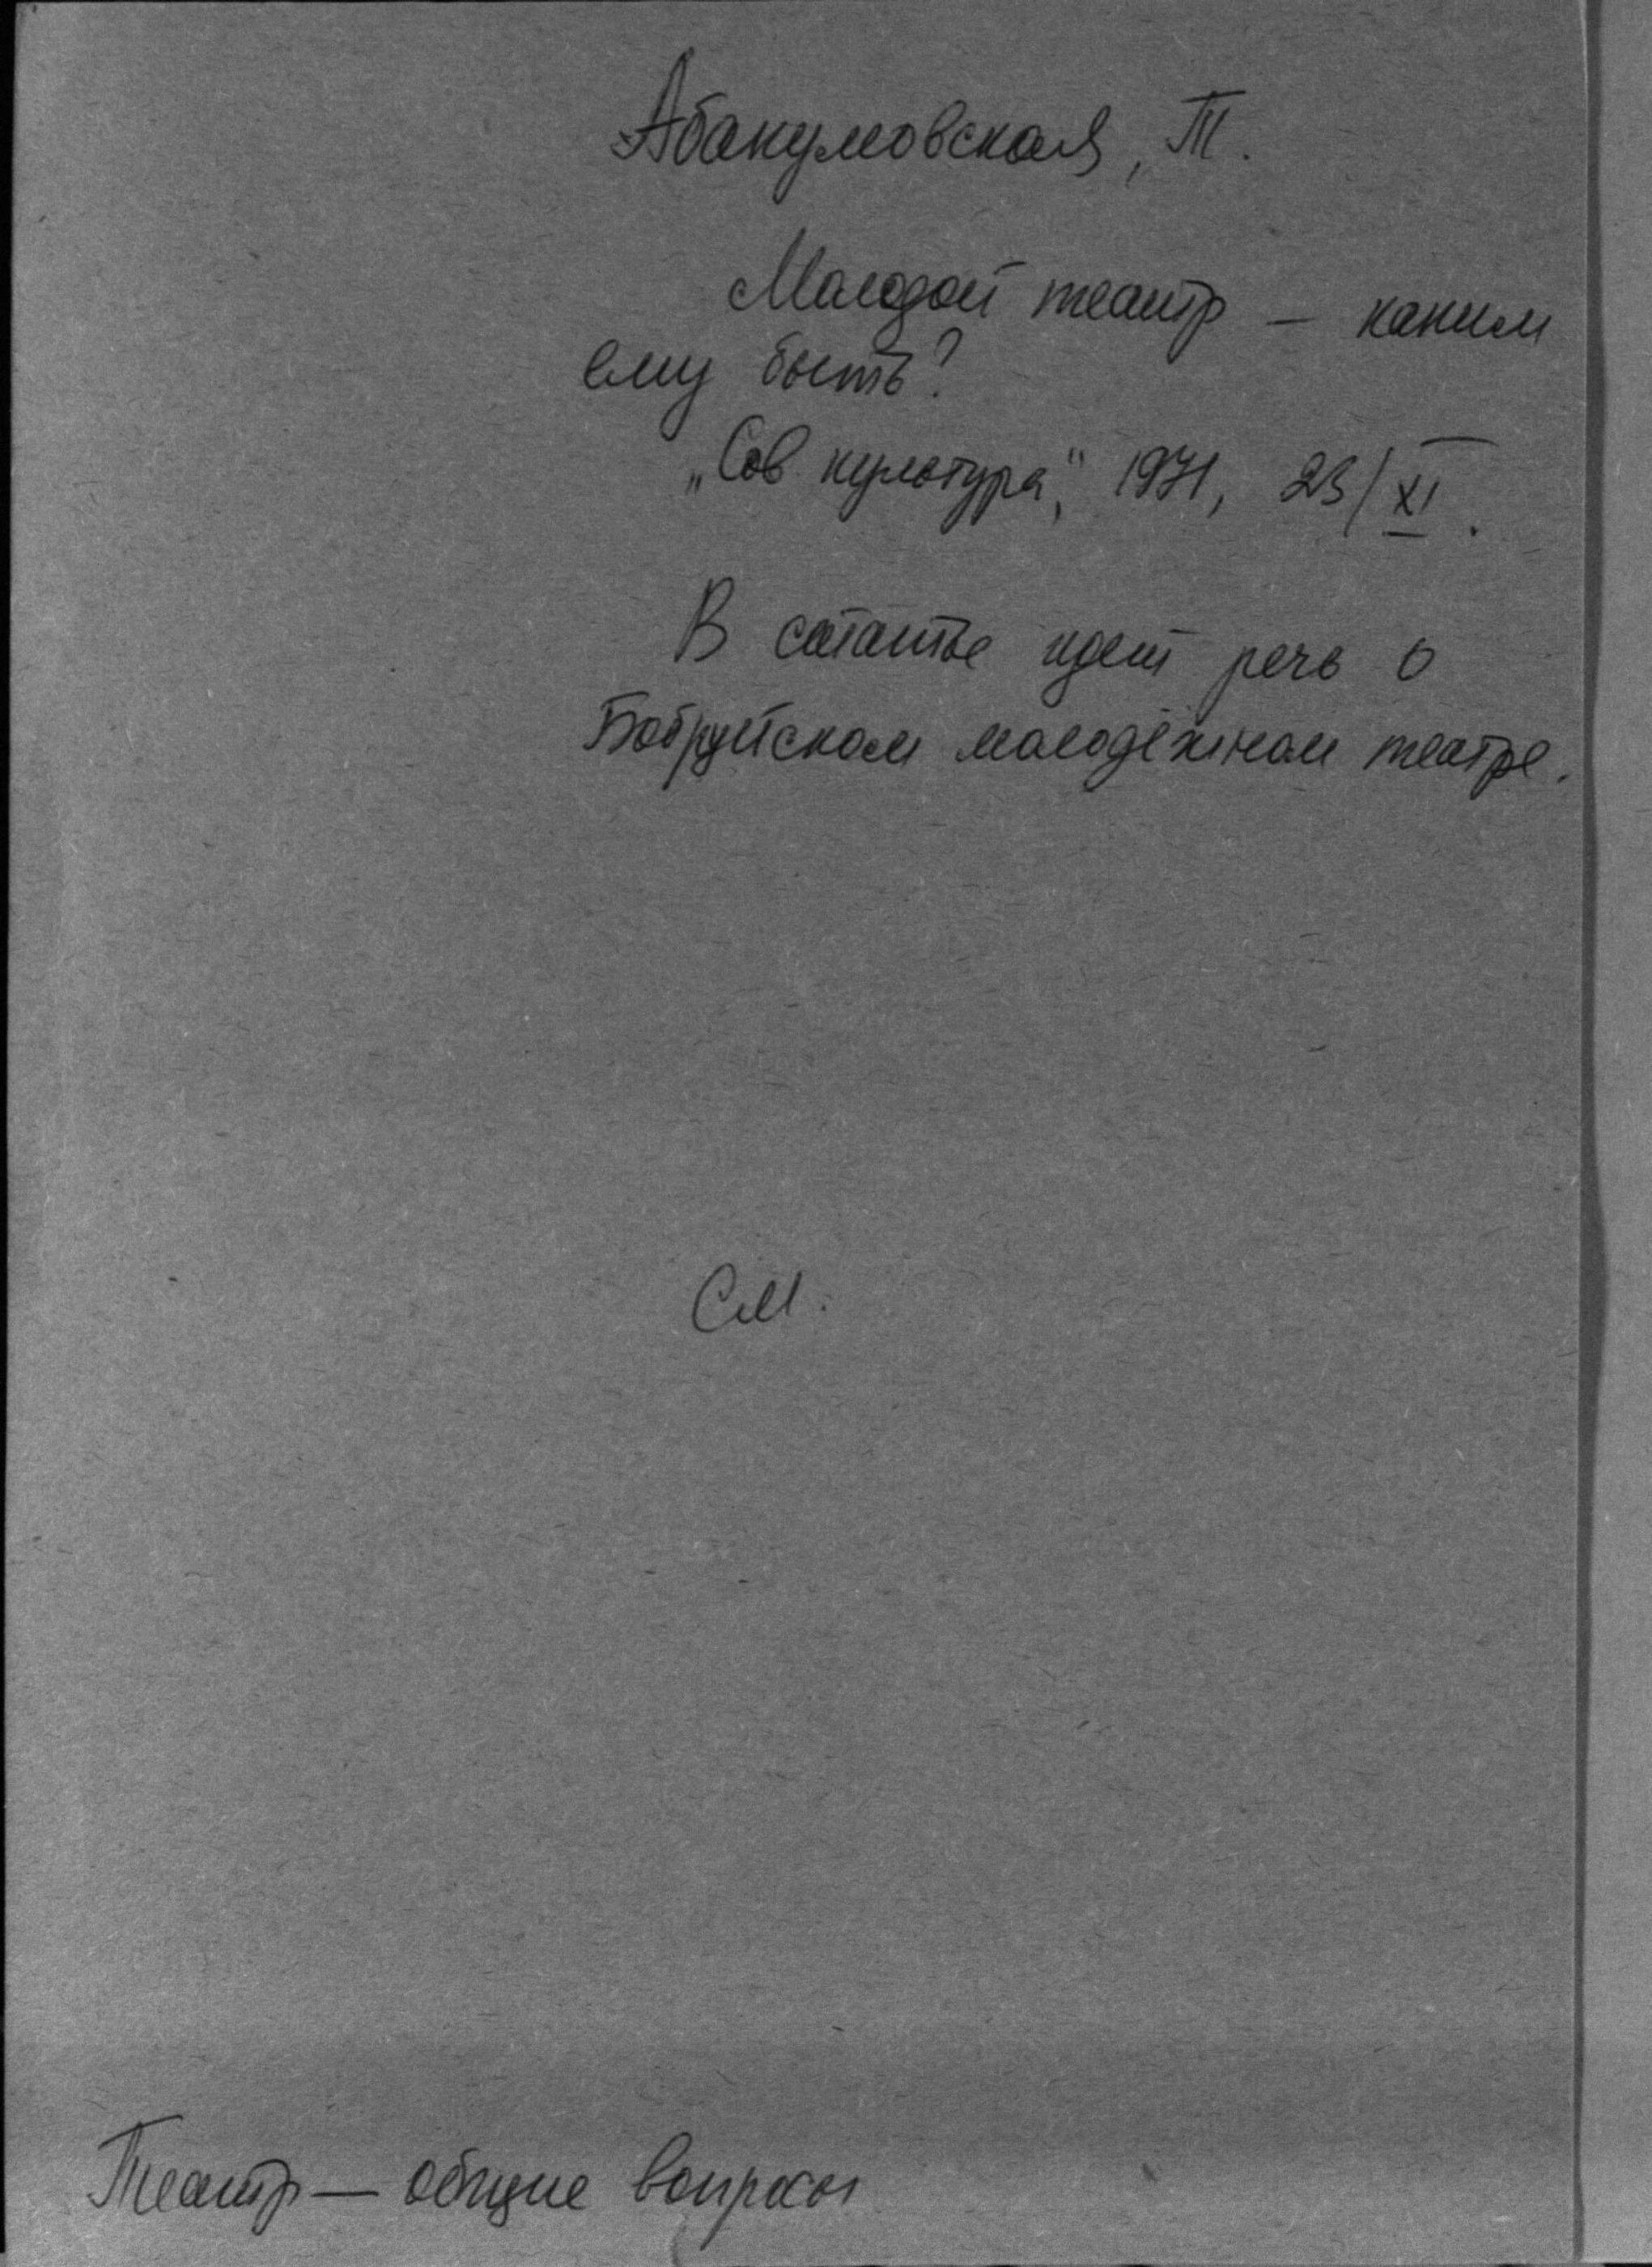 Абакумовская, Т.
Молодой театр – каким
ему быть?
„Сов. культура", 1971, 23/XI.
В статье идет речь о
Бобруйском молодёжном театре.
См.
Театр – общие вопросы